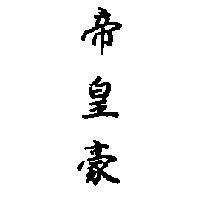 帝皇豪